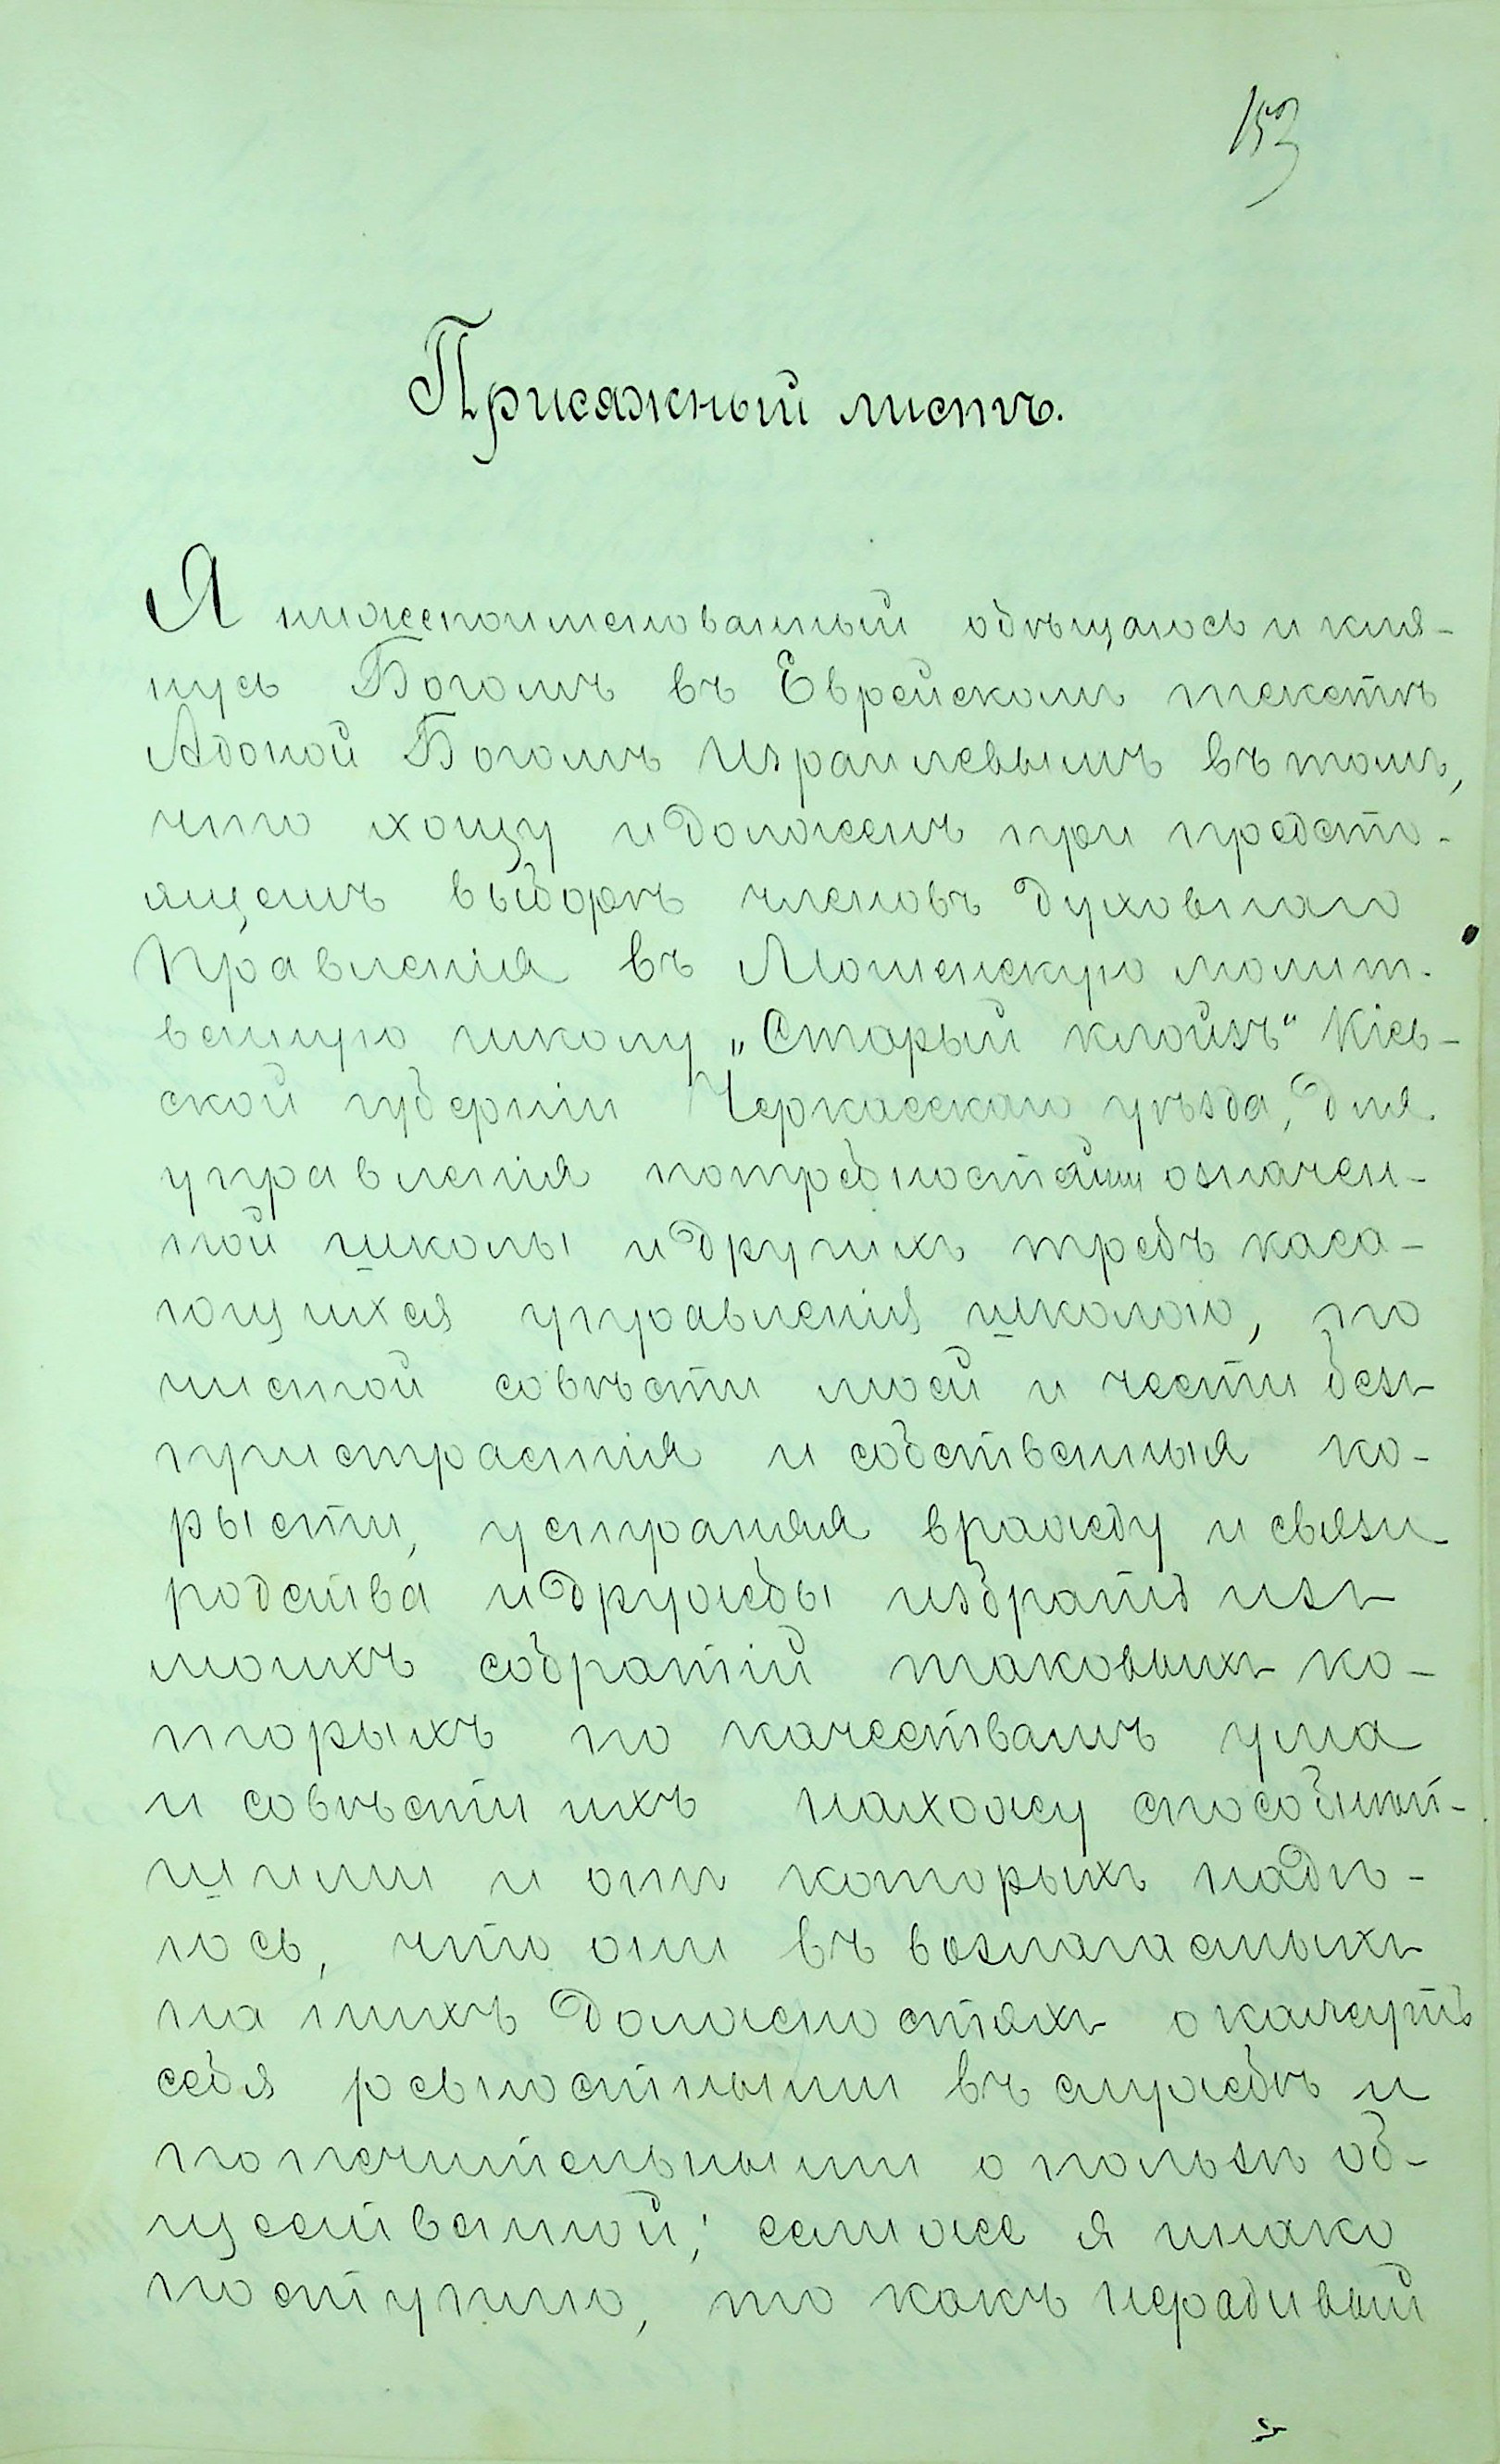 153
Присяжный листъ.
Я нижепоименованный обѣщаюсь и кля-
нусь Богомъ въ Еврейскомъ текстѣ
Адоной Богомъ Израилевымъ въ томъ,
что хощу и долженъ при предсто-
ящемъ выборѣ членовъ духовнаго
Правленія въ Мошенскую молит-
венную школу „Старый клойзъ“ Кіев-
ской губерніи Черкасскаго уѣзда, для
управленія потребностями означен-
ной школы и другихъ требъ каса-
ющихся управленія школою, по
чистой совѣсти моей и чести безъ
пристрастія и собственныя ко-
рысти, устраняя вражду и связи
родства и дружбы избрать изъ
моихъ собратій таковыхъ ко-
торыхъ по качествамъ ума
и совѣсти ихъ нахожу способнѣй-
шими и отъ которыхъ надѣ-
юсь, что они въ возлагаемыхъ
на нихъ должностяхъ окажутъ
себя ревностными въ службѣ и
попечительными о пользѣ об-
щественной; если же я инако
поступлю, то какъ нерадивый